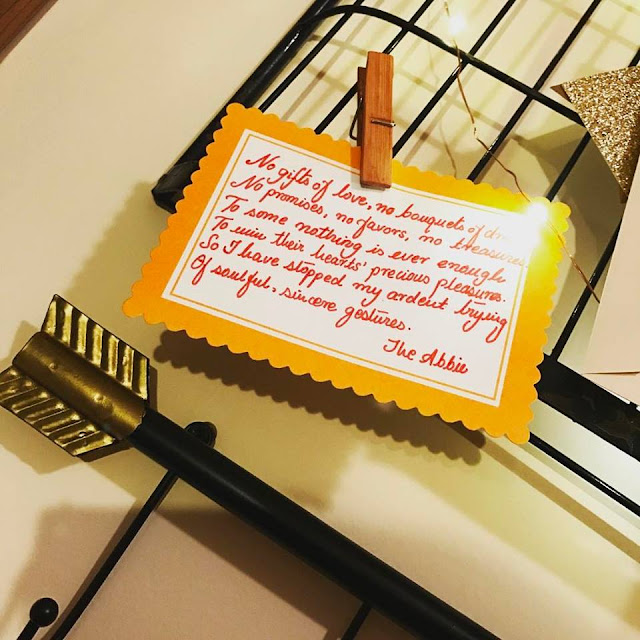 No gifts of love, no bouquets of
No promises, no favors, no treasures.
To some nothing is ever enough
To win their hearts' precious pleasures.
So I have stopped my ardent trying
Of soulful, sincere gestures.
The Abbie